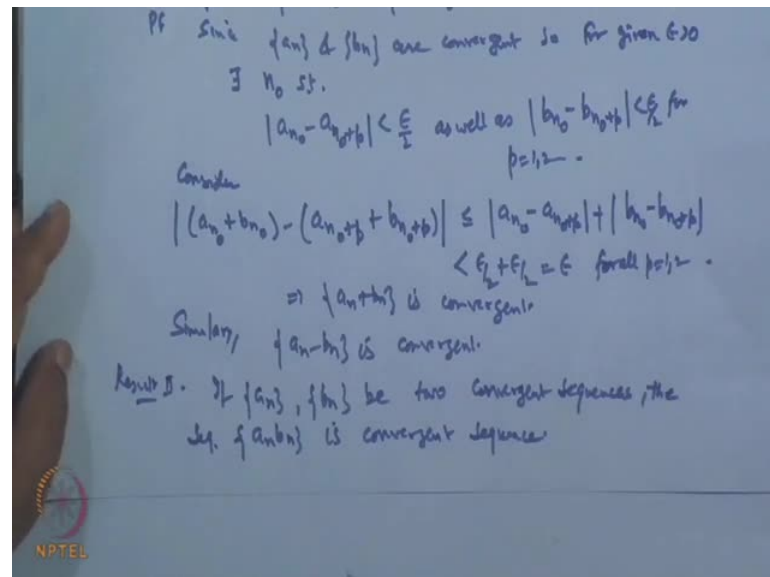 Pf Sinc {an} & {bn} are convergent so for given ϵ>0
∃ n₀ st.
|a_{n₀} - a_{n₀+p}| < ϵ/2 as well as |b_{n₀} - b_{n₀+p}| < ϵ/2 for
p=1,2—.
Consider
|(a_{n₀} + b_{n₀}) - (a_{n₀+p} + b_{n₀+p})| ≤ |a_{n₀} - a_{n₀+p}| + |b_{n₀} - b_{n₀+p}|
< ϵ/2 + ϵ/2 = ϵ for all p=1,2—.
⇒ {an+bn} is convergent.
Similarly, {an-bn} is convergent.
Result II. If {an}, {bn} be two convergent sequences, the
seq. {anbn} is convergent sequence
NPTEL